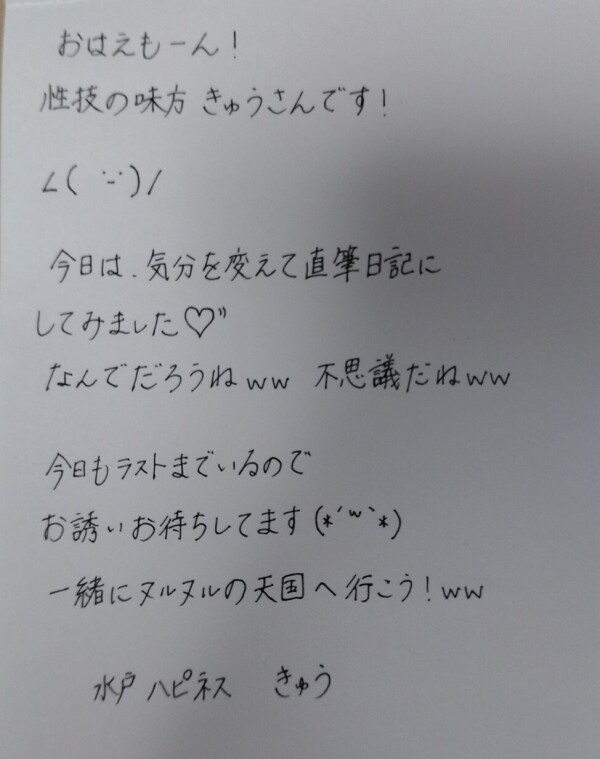 おはえもーん！
性技の味方 きゅうさんです！
∠( ˙-˙ )/
今日は、気分を変えて直筆日記に
してみました♡"
なんでだろうねww 不思議だねww
今日もラストまでいるので
お誘いお待ちしてます(*´꒳`*)
一緒にヌルヌルの天国へ行こう！ww
水戸ハピネス きゅう